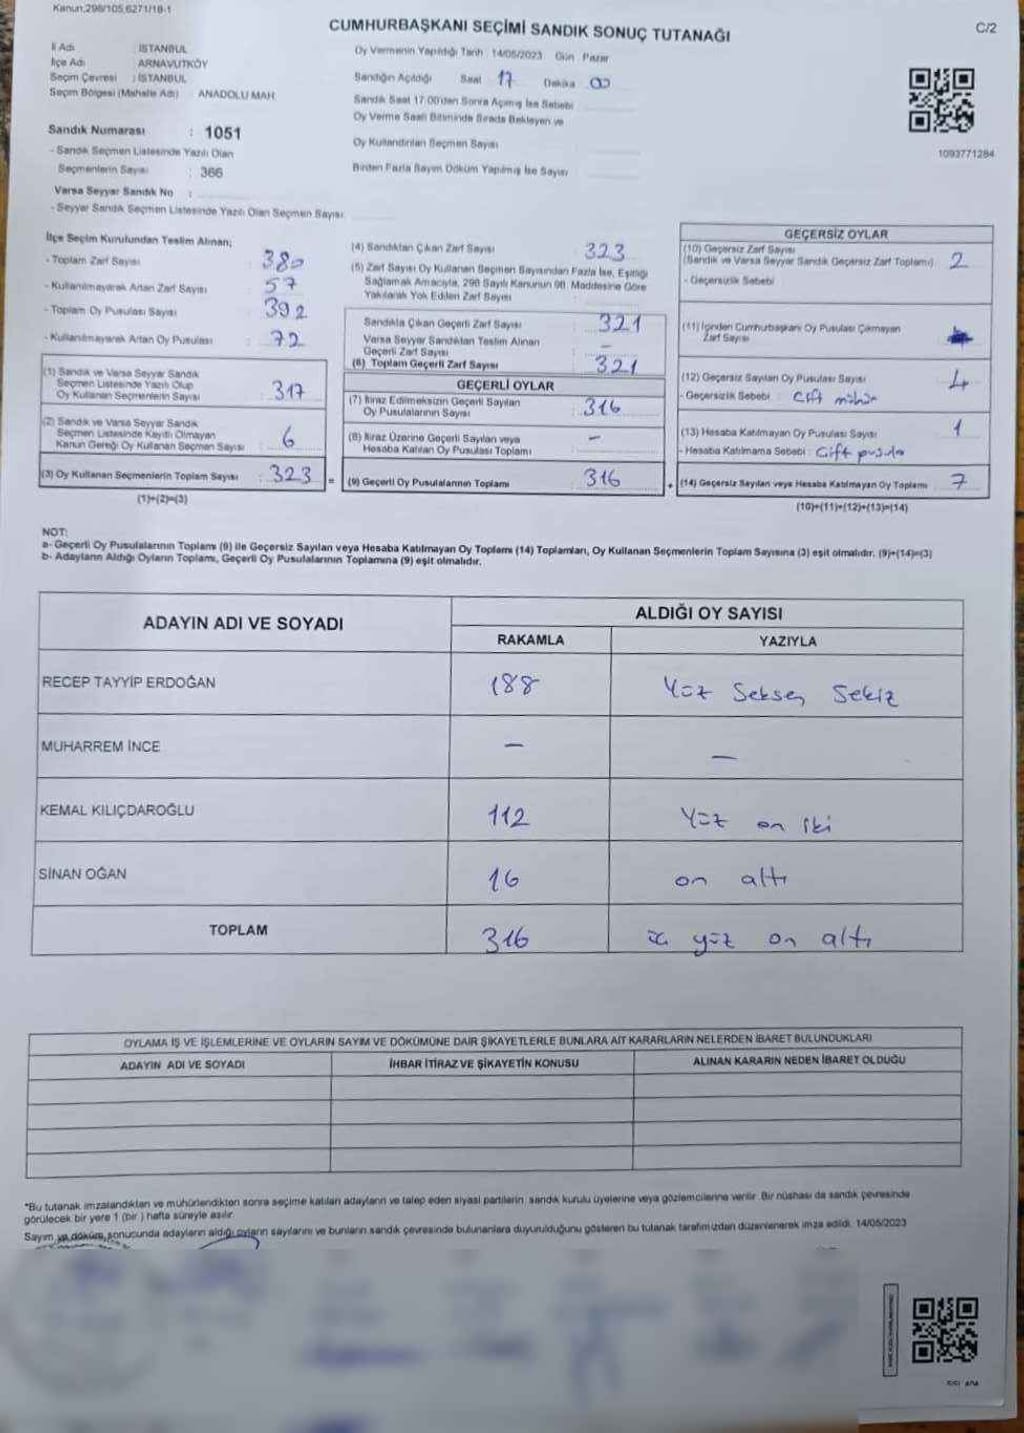 Kanun;298/105,6271/18-1
CUMHURBAŞKANI SEÇİMİ SANDIK SONUÇ TUTANAĞI
C/2
İl Adı : İSTANBUL
İlçe Adı : ARNAVUTKÖY
Seçim Çevresi : İSTANBUL
Seçim Bölgesi (Mahalle Adı) : ANADOLU MAH.
Oy Vermenin Yapıldığı Tarih 14/05/2023 Gün Pazar
Sandığın Açıldığı Saat 17 Dakika 00
Sandık Saat 17:00'den Sonra Açılmış İse Sebebi
Oy Verme Saati Bitiminde Sırada Bekleyen ve
Oy Kullandırılan Seçmen Sayısı
Birden Fazla Sayım Döküm Yapılmış İse Sayısı
1093771284
Sandık Numarası : 1051
- Sandık Seçmen Listesinde Yazılı Olan
Seçmenlerin Sayısı : 366
Varsa Seyyar Sandık No :
- Seyyar Sandık Seçmen Listesinde Yazılı Olan Seçmen Sayısı:
İlçe Seçim Kurulundan Teslim Alınan;
- Toplam Zarf Sayısı : 380
- Kullanılmayarak Artan Zarf Sayısı : 57
- Toplam Oy Pusulası Sayısı : 392
- Kullanılmayarak Artan Oy Pusulası : 72
(1) Sandık ve Varsa Seyyar Sandık
Seçmen Listesinde Yazılı Olup
Oy Kullanan Seçmenlerin Sayısı : 317
(2) Sandık ve Varsa Seyyar Sandık
Seçmen Listesinde Kayıtlı Olmayan
Kanun Gereği Oy Kullanan Seçmen Sayısı : 6
(3) Oy Kullanan Seçmenlerin Toplam Sayısı : 323
(1)+(2)=(3)
(4) Sandıktan Çıkan Zarf Sayısı : 323
(5) Zarf Sayısı Oy Kullanan Seçmen Sayısından Fazla İse, Eşitliği
Sağlamak Amacıyla, 298 Sayılı Kanunun 98. Maddesine Göre
Yakılarak Yok Edilen Zarf Sayısı :
Sandıkta Çıkan Geçerli Zarf Sayısı : 321
Varsa Seyyar Sandıktan Teslim Alınan
Geçerli Zarf Sayısı : -
(6) Toplam Geçerli Zarf Sayısı : 321
GEÇERLİ OYLAR
(7) İtiraz Edilmeksizin Geçerli Sayılan
Oy Pusulalarının Sayısı : 316
(8) İtiraz Üzerine Geçerli Sayılan veya
Hesaba Katılan Oy Pusulası Toplamı : -
= (9) Geçerli Oy Pusulalarının Toplamı : 316
GEÇERSİZ OYLAR
(10) Geçersiz Zarf Sayısı
(Sandık ve Varsa Seyyar Sandık Geçersiz Zarf Toplamı) : 2
- Geçersizlik Sebebi :
(11) İçinden Cumhurbaşkanı Oy Pusulası Çıkmayan
Zarf Sayısı :
(12) Geçersiz Sayılan Oy Pusulası Sayısı : 4
- Geçersizlik Sebebi : Çift mühür
(13) Hesaba Katılmayan Oy Pusulası Sayısı : 1
- Hesaba Katılmama Sebebi : Çift pusula
+ (14) Geçersiz Sayılan veya Hesaba Katılmayan Oy Toplamı : 7
(10)+(11)+(12)+(13)=(14)
NOT:
a- Geçerli Oy Pusulalarının Toplamı (9) ile Geçersiz Sayılan veya Hesaba Katılmayan Oy Toplamı (14) Toplamları, Oy Kullanan Seçmenlerin Toplam Sayısına (3) eşit olmalıdır. (9)+(14)=(3)
b- Adayların Aldığı Oyların Toplamı, Geçerli Oy Pusulalarının Toplamına (9) eşit olmalıdır.
ADAYIN ADI VE SOYADI
ALDIĞI OY SAYISI
RAKAMLA YAZIYLA
RECEP TAYYİP ERDOĞAN 188 Yüz Seksen Sekiz
MUHARREM İNCE - -
KEMAL KILIÇDAROĞLU 112 Yüz on iki
SİNAN OĞAN 16 on altı
TOPLAM 316 üç yüz on altı
OYLAMA İŞ VE İŞLEMLERİNE VE OYLARIN SAYIM VE DÖKÜMÜNE DAİR ŞİKAYETLERLE BUNLARA AİT KARARLARIN NELERDEN İBARET BULUNDUKLARI
ADAYIN ADI VE SOYADI İHBAR İTİRAZ VE ŞİKAYETİN KONUSU ALINAN KARARIN NEDEN İBARET OLDUĞU
*Bu tutanak imzalandıktan ve mühürlendikten sonra seçime katılan adayların ve talep eden siyasi partilerin sandık kurulu üyelerine veya gözlemcilerine verilir. Bir nüshası da sandık çevresinde
görülecek bir yere 1 (bir ) hafta süreyle asılır.
Sayım ve döküm sonucunda adayların aldığı oyların sayılarını ve bunların sandık çevresinde bulunanlara duyurulduğunu gösteren bu tutanak tarafımızdan düzenlenerek imza edildi. 14/05/2023